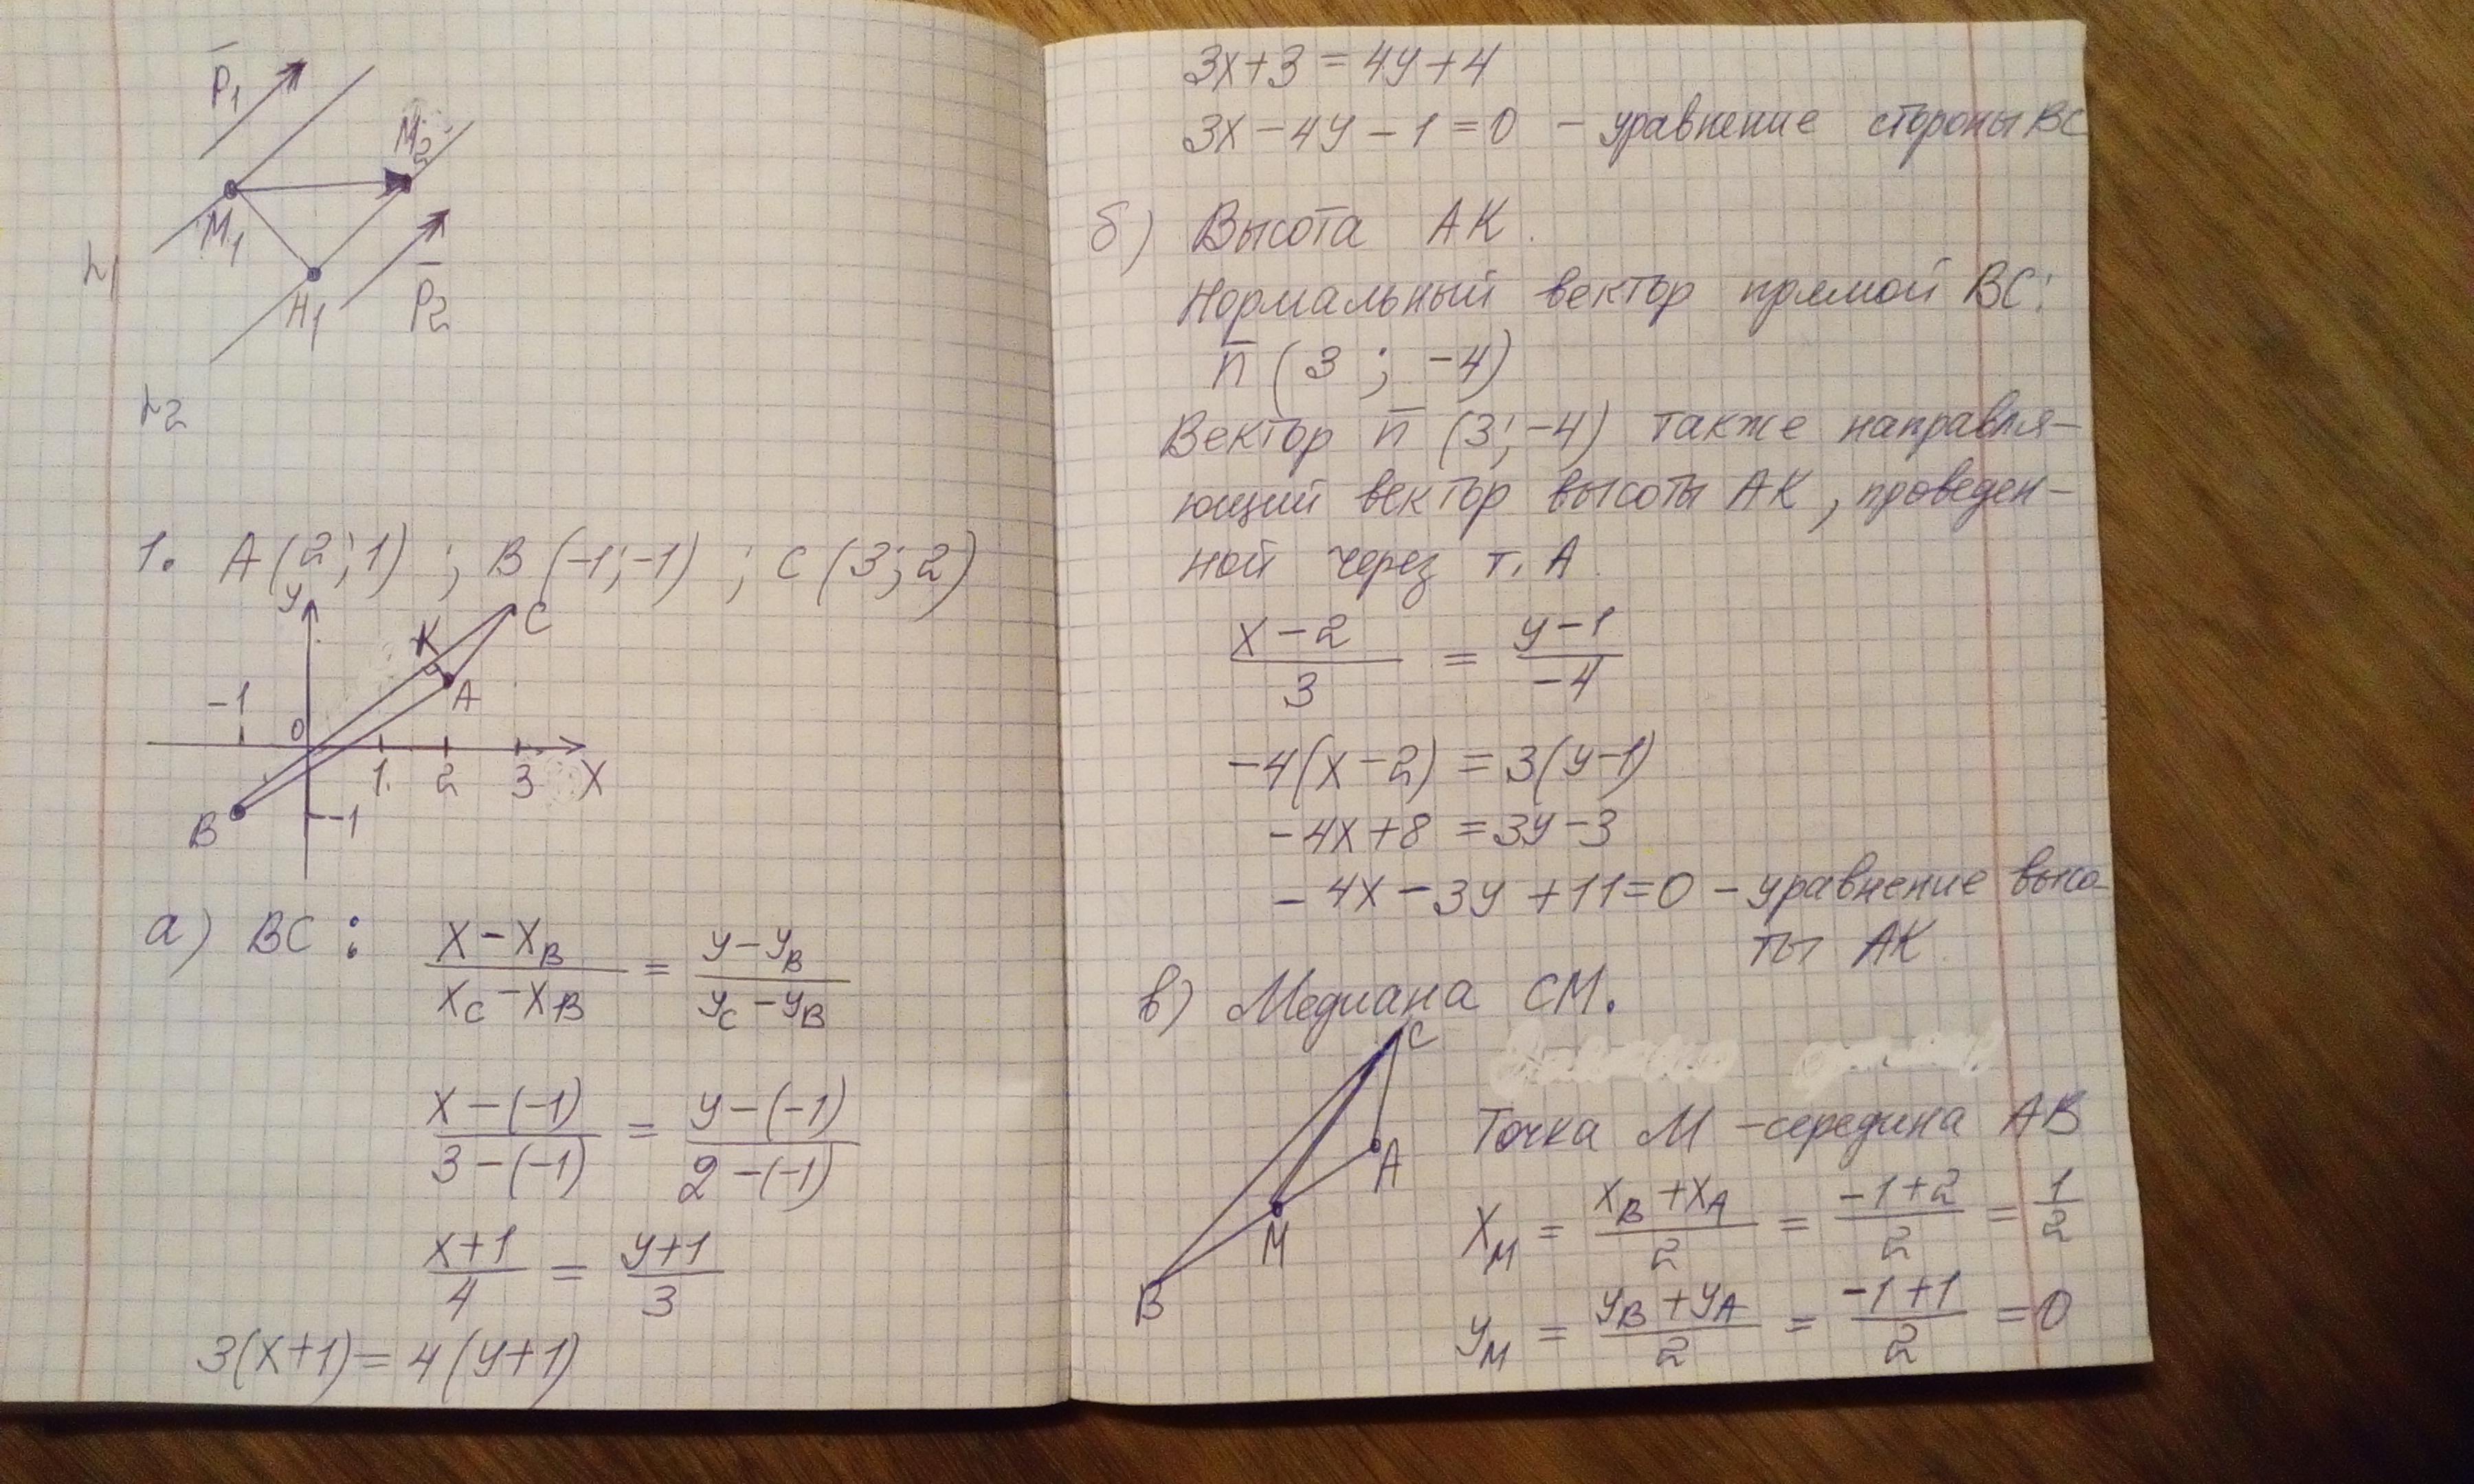 P̅₁
M₂
M₁
L₁
H₁
P̅₂
L₂
1. A(2;1) ; B(-1;-1) ; C(3;2)
y
C
K
A
-1
0
1 2 3 X
B
-1
а) BC : (X-X_B)/(X_C-X_B) = (y-y_B)/(y_C-y_B)
(X-(-1))/(3-(-1)) = (y-(-1))/(2-(-1))
(X+1)/4 = (y+1)/3
3(X+1)=4(y+1)
3X+3=4y+4
3X-4y-1=0 - уравнение стороны BC
б) Высота AK.
Нормальный вектор прямой BC:
n̅ (3 ; -4)
Вектор n̅ (3;-4) также направля-
ющий вектор высоты AK, проведен-
ной через т. A.
(X-2)/3 = (y-1)/-4
-4(X-2)=3(y-1)
-4X+8=3y-3
-4X-3y+11=0 - уравнение высо-
ты AK.
в) Медиана CM.
C
Точка M - середина AB
A
M
B
X_M = (X_B+X_A)/2 = (-1+2)/2 = 1/2
y_M = (y_B+y_A)/2 = (-1+1)/2 = 0